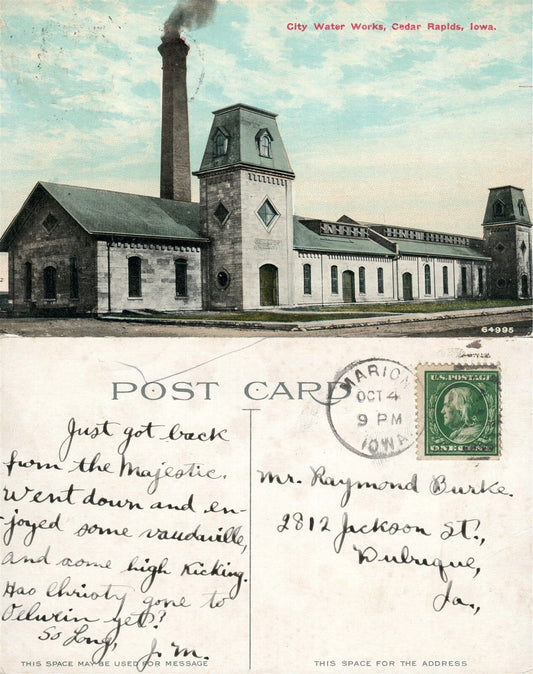 City Water Works, Cedar Rapids, Iowa.
64995
POST CARD
MARION
OCT 4
9 PM
IOWA
U.S. POSTAGE
ONE CENT
Just got back
from the Majestic.
Went down and en-
joyed some vaudaville,
and some high kicking.
Has Christy gone to
Oelwein yet?
So Long,
J. M.
Mr. Raymond Burke.
2812 Jackson St.,
Dubuque,
Ia.,
THIS SPACE MAY BE USED FOR MESSAGE
THIS SPACE FOR THE ADDRESS